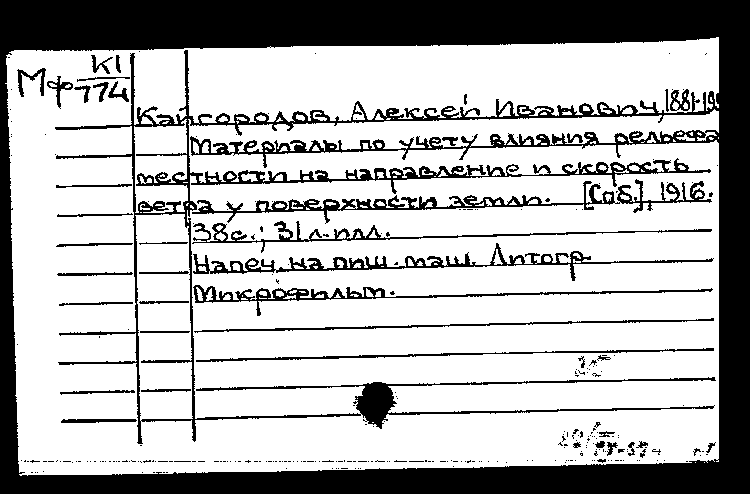 Мф К1/774
Кайгородов, Алексей Иванович, 1881-19
Материалы по учету влияния рельефа
местности на направление и скорость
ветра у поверхности земли. [Спб.], 1916.
38с.; 31л.илл.
Напеч. на пиш. маш. Литогр
Микрофильм.